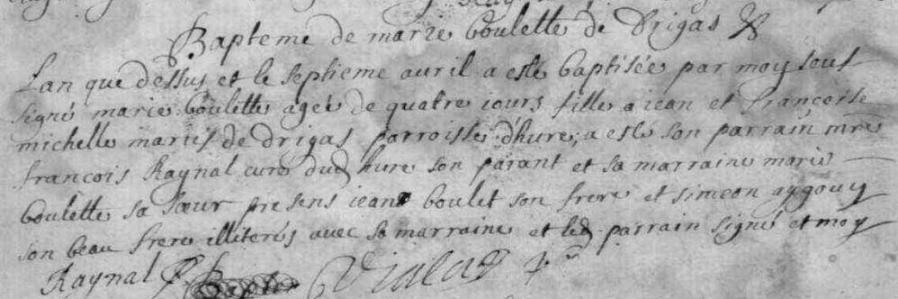 Bapteme de marie boulette de Drigas
Lan que dessus et le septieme auril a esté baptisée par moy sous
signé marie boulette ageé de quatre iours fille a iean et francoise
michelle mariés de drigas parroisse d'hure, a esté son parrain mre
francois Raynal curé dud hure son parant et sa marraine marie
boulette sa sœur presens iean boulet son frere et simeon aygouy
son beau frere illiterés avec sa marraine et led parrain signé et moy
Raynal